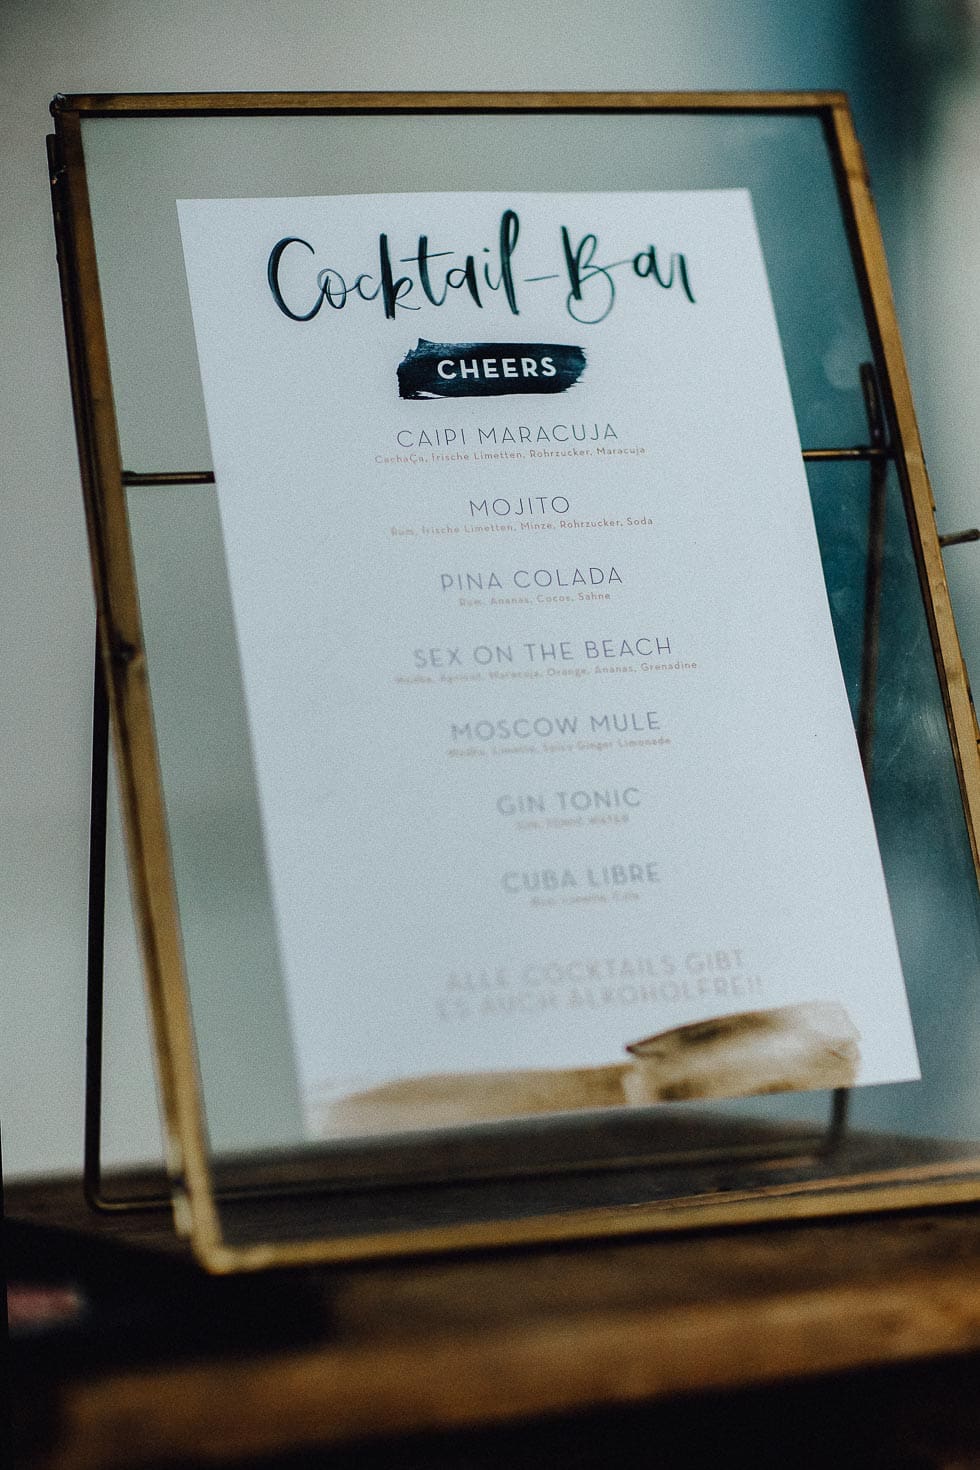 Cocktail-Bar
CHEERS
CAIPI MARACUJA
CachaÇa, frische Limetten, Rohrzucker, Maracuja
MOJITO
Rum, frische Limetten, Minze, Rohrzucker, Soda
PINA COLADA
Rum, Ananas, Cocos, Sahne
SEX ON THE BEACH
Wodka, Apricot, Maracuja, Orange, Ananas, Grenadine
MOSCOW MULE
Wodka, Limette, Spicy Ginger Limonade
GIN TONIC
Gin, Tonic Water
CUBA LIBRE
Rum, Limette, Cola
ALLE COCKTAILS GIBT
ES AUCH ALKOHOLFREI!